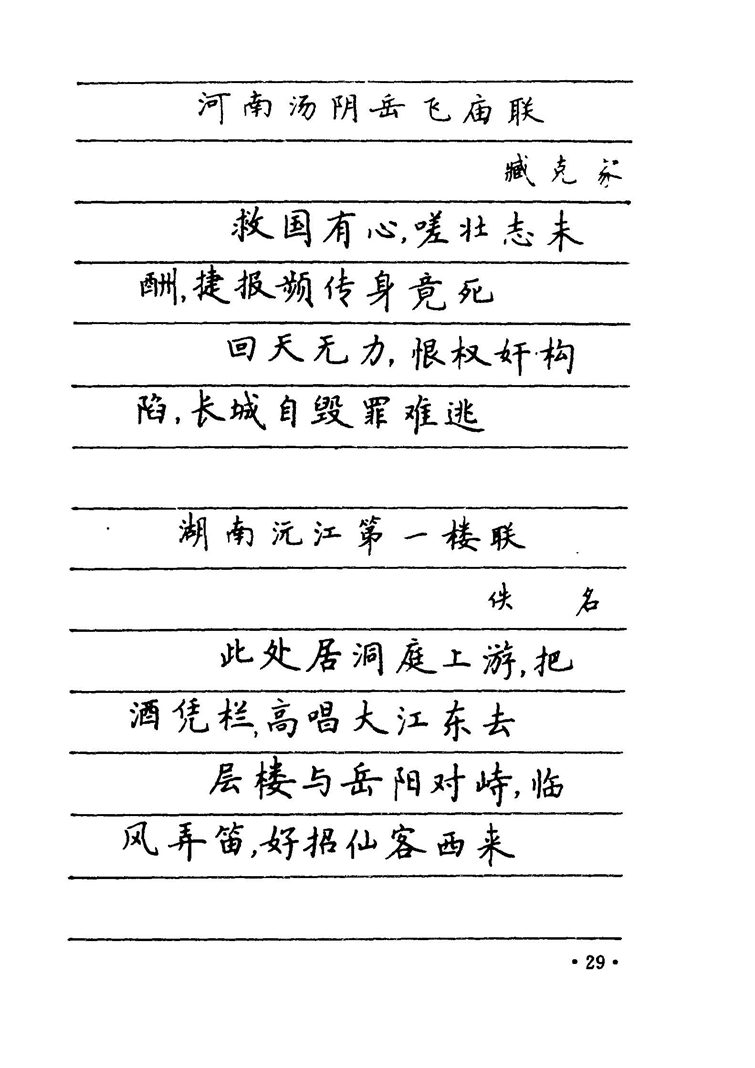 河南汤阴岳飞庙联
臧克家
救国有心,嗟壮志未
酬,捷报频传身竟死
回天无力,恨权奸构
陷,长城自毁罪难逃
湖南沅江第一楼联
佚 名
此处居洞庭上游,把
酒凭栏,高唱大江东去
层楼与岳阳对峙,临
风弄笛,好招仙客西来
·29·